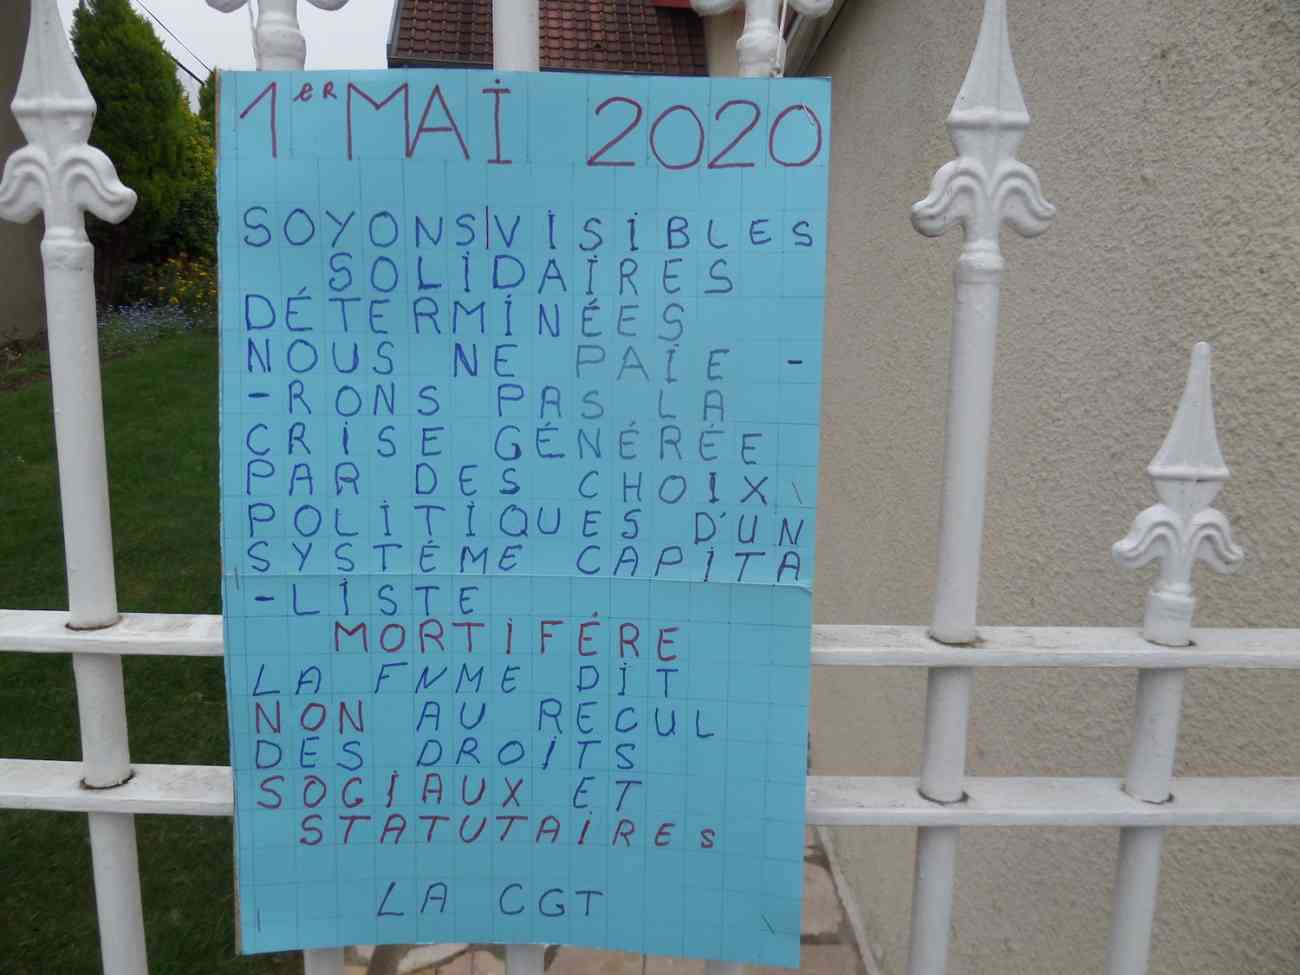 1er MAI 2020
SOYONS VISIBLES
SOLIDAIRES
DÉTERMINÉES
NOUS NE PAIE -
-RONS PAS LA
CRISE GÉNÉRÉE
PAR DES CHOIX
POLITIQUES D'UN
SYSTÉME CAPITA
-LISTE
MORTIFÉRE
LA FNME DIT
NON AU RECUL
DES DROITS
SOCIAUX ET
STATUTAIRES
LA CGT